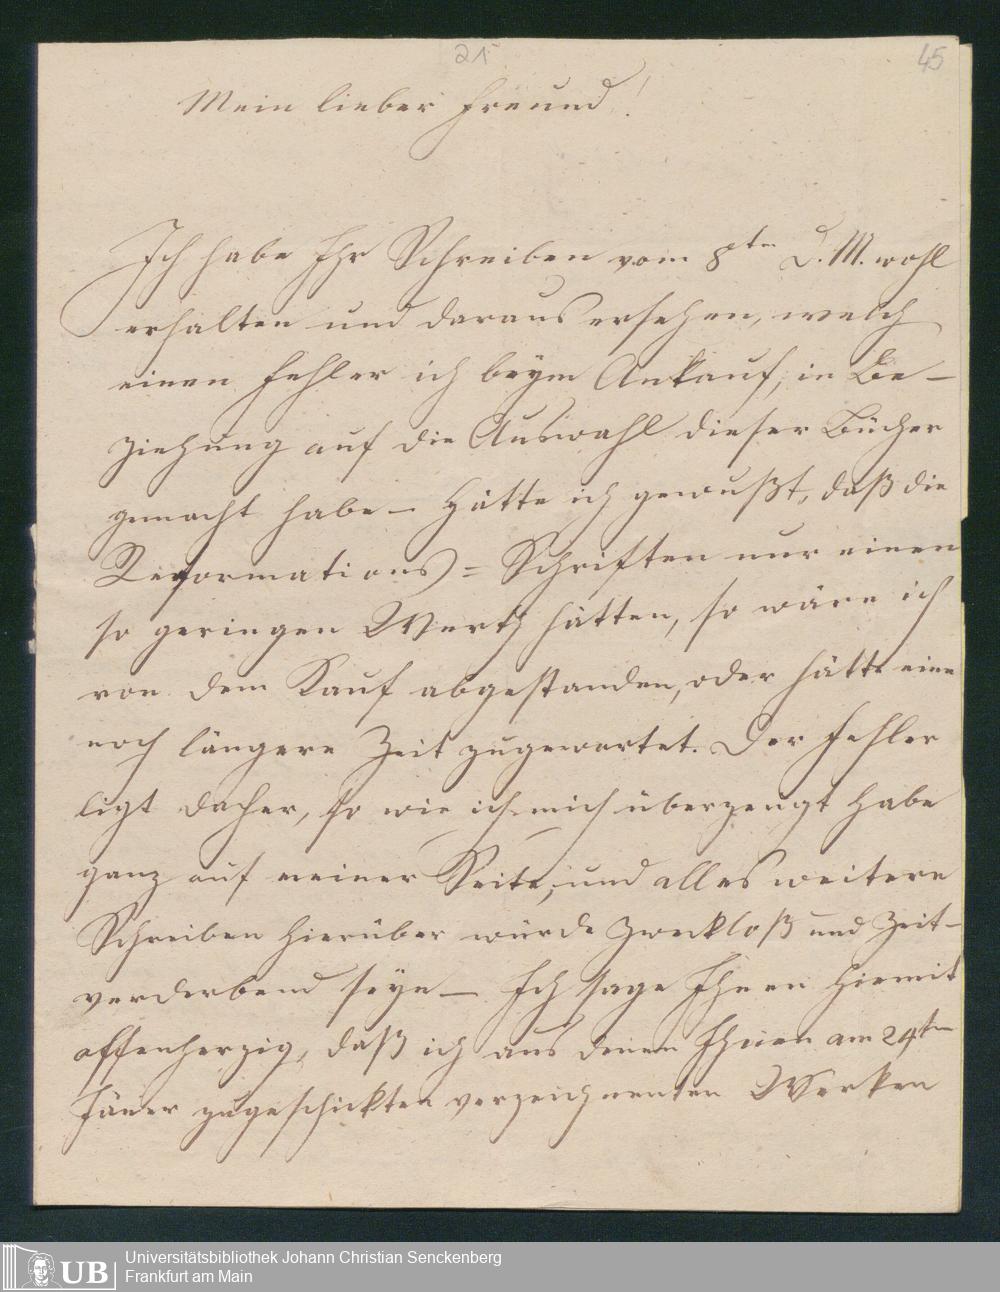 21
45
Mein lieber Freund!
Ich habe Ihr Schreiben vom 8ten d. M. wohl
erhalten und daraus ersehen, welch
einen Fehler ich beym Ankauf, in Be-
ziehung auf die Auswahl dieser Bücher
gemacht habe – Hätte ich gewußt, daß die
Reformations=Schriften nur einen
so geringen Werth hätten, so wäre ich
von dem Kauf abgestanden, oder hätte eine
noch längere Zeit zugewartet. Der Fehler
ligt daher, so wie ich mich überzeugt habe
ganz auf meiner Seite, und alles weitere
Schreiben hierüber würde zweckloß und Zeit-
verderbend seyn – Ich sage Ihnen hiemit
offenherzig, daß ich aus denen Ihnen am 24ten
Jäner zugeschickten verzeichneten Werken
UB
Universitätsbibliothek Johann Christian Senckenberg
Frankfurt am Main